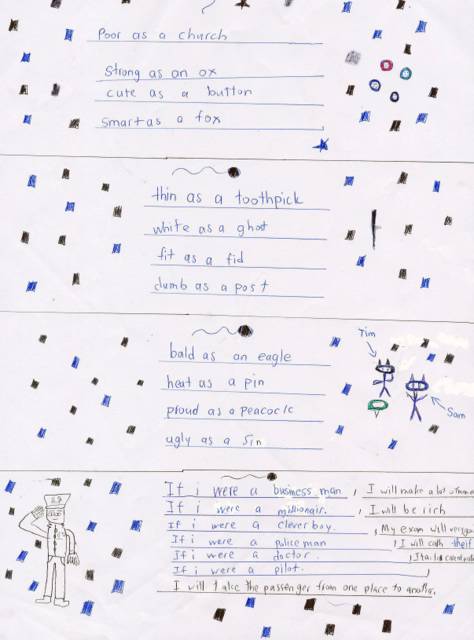 Poor as a church
Strong as an ox
cute as a button
smart as a fox
thin as a toothpick
white as a ghost
fit as a fid
dumb as a post
Tim
bald as an eagle
heat as a pin
proud as a peacock
Sam
ugly as a Sin
If i were a business man , I will make a lot
If i were a millionair. , I will be rich
If i were a clever boy. , My exam will
If i were a police man , I will cath theif
If i were a doctor.
If i were a pilot.
I will take the passenger from one place to another.